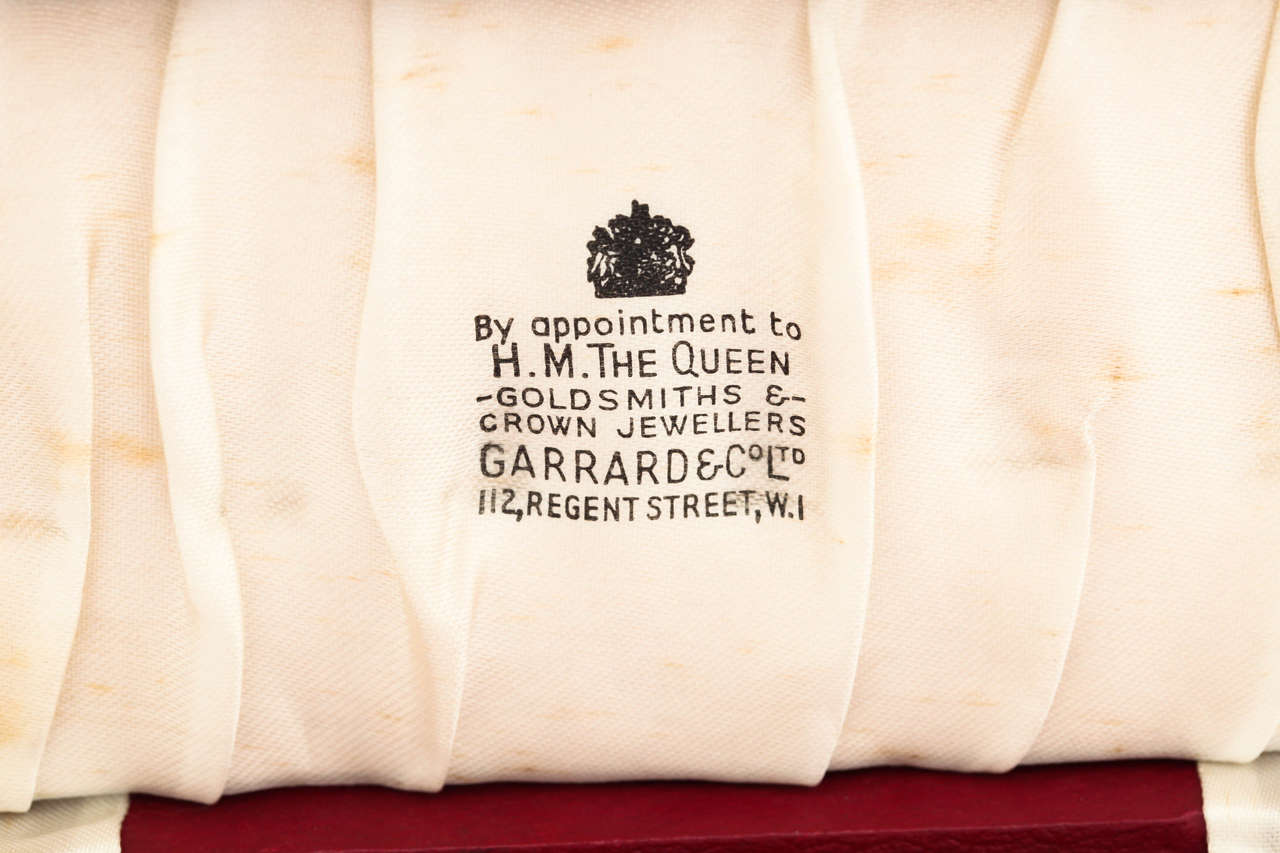 By appointment to
H.M. THE QUEEN
-GOLDSMITHS &-
CROWN JEWELLERS
GARRARD & Co LTD
112, REGENT STREET, W.1